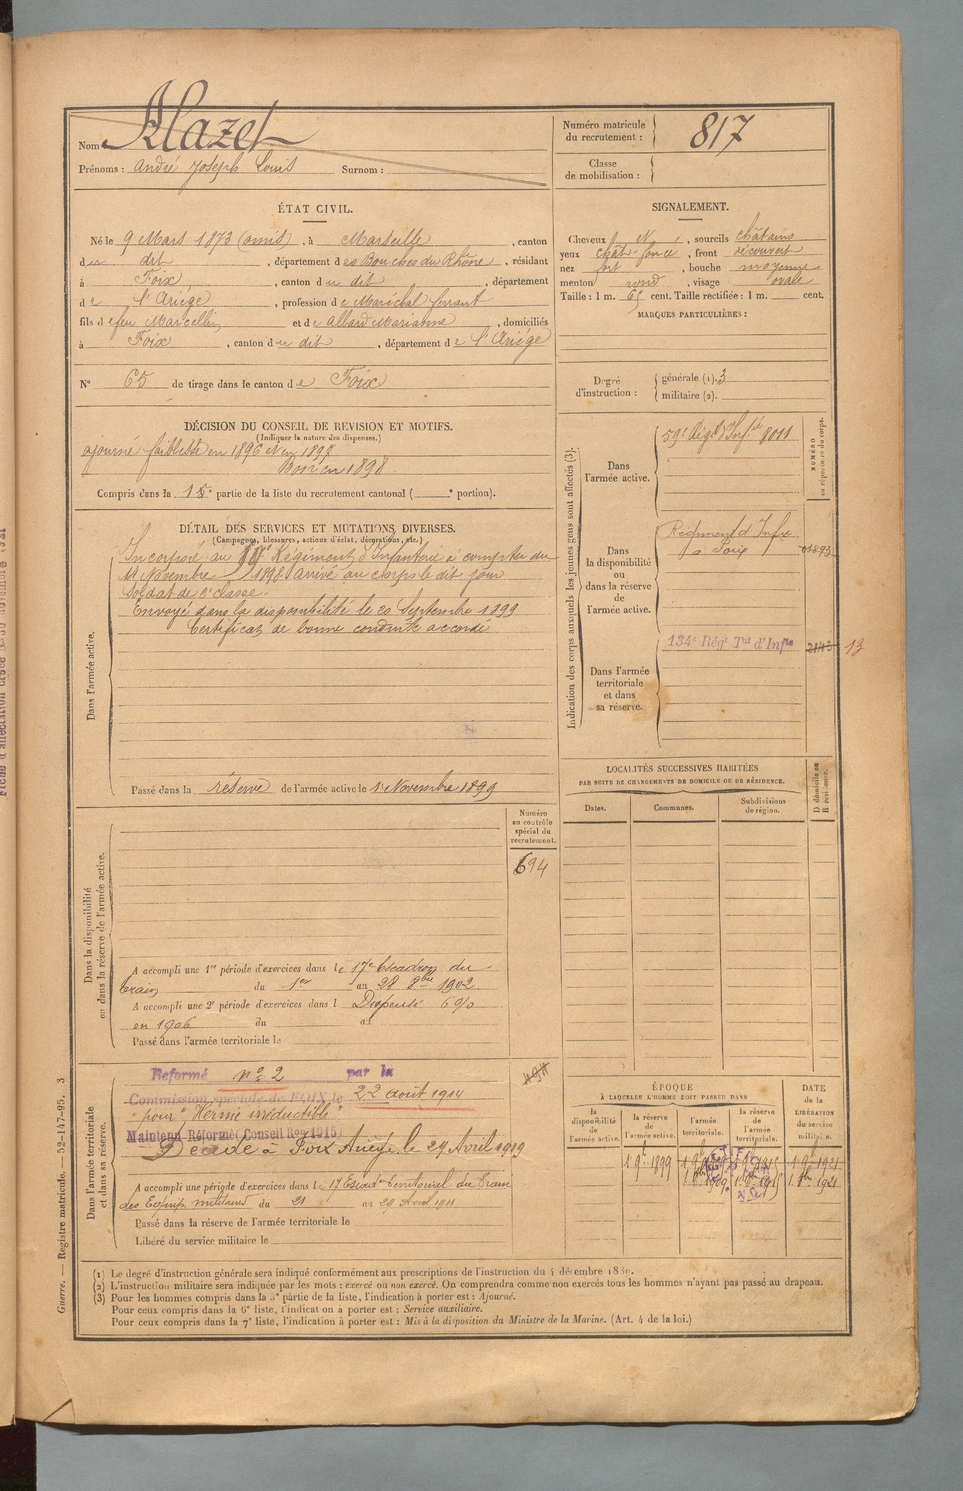 Nom Alazet
Prénoms : André Joseph Louis Surnom :
Numéro matricule du recrutement : 817
Classe de mobilisation :
ÉTAT CIVIL.
Né le 9 Mars 1873 (omis), à Marseille, canton
du dit, département des Bouches du Rhône, résidant
à Foix, canton du dit, département
de l'Ariège, profession de Maréchal ferrant
fils de feu Marcellin et de Allard Marianne, domiciliés
à Foix, canton du dit, département de l'Ariège
N° 65 de tirage dans le canton de Foix
SIGNALEMENT.
Cheveux, sourcils châtains
yeux chât. foncé, front découvert
nez fort, bouche moyenne
menton rond, visage ovale
Taille : 1 m. 65 cent. Taille rectifiée : 1 m. cent.
MARQUES PARTICULIÈRES :
Degré d'instruction : générale (1). 3
militaire (2).
DÉCISION DU CONSEIL DE REVISION ET MOTIFS.
(Indiquer la nature des dispenses.)
ajourné faiblesse en 1896 et en 1897
Bon en 1898.
Compris dans la 1e partie de la liste du recrutement cantonal ( e portion).
DÉTAIL DES SERVICES ET MUTATIONS DIVERSES.
(Campagnes, blessures, actions d'éclat, décorations, etc.)
Dans l'armée active.
Incorporé au Régiment d'Infanterie à compter du
14 Novembre 1898. Arrivé au corps le dit jour
Soldat de 2e classe.
Envoyé dans la disponibilité le 20 Septembre 1899
Certificat de bonne conduite accordé
Passé dans la réserve de l'armée active le 1er Novembre 1899
Indication des corps auxquels les jeunes gens sont affectés (3).
NUMÉRO au répertoire du corps.
Dans l'armée active.
59e Régt d'Infie 8011
Dans la disponibilité ou dans la réserve de l'armée active.
Régiment d'Infie
à Foix 03893
Dans l'armée territoriale et dans sa réserve.
134e Régt Tal d'Infie 13
LOCALITÉS SUCCESSIVES HABITÉES
PAR SUITE DE CHANGEMENTS DE DOMICILE OU DE RÉSIDENCE.
Dates. Communes. Subdivisions de région. D domicile ou R résidence.
Dans la disponibilité ou dans la réserve de l'armée active.
Numéro au contrôle spécial du recrutement.
694
A accompli une 1re période d'exercices dans le 17e Escadron du
train du 1er au 28 8bre 1902.
A accompli une 2e période d'exercices dans l Dispensé 6 %
en 1906 du au
Passé dans l'armée territoriale le
Dans l'armée territoriale et dans sa réserve.
Reformé n° 2 par la
Commission spéciale de FOIX le 22 août 1914
"pour" Hernie irréductible"
Maintenu Réformé (Conseil Rev 1915)
Décédé à Foix Ariège, le 29 Avril 1919
A accompli une période d'exercices dans le 17 Escadon territorial du Train
des Equip. militaires du 21 au 29 Avril 1911
Passé dans la réserve de l'armée territoriale le
Libéré du service militaire le
ÉPOQUE
À LAQUELLE L'HOMME DOIT PASSER DANS
la disponibilité de l'armée active. la réserve de l'armée active. l'armée territoriale. la réserve de l'armée territoriale.
DATE de la LIBÉRATION du service militaire.
(1) Le degré d'instruction générale sera indiqué conformément aux prescriptions de l'instruction du 4 décembre
(2) L'instruction militaire sera indiquée par les mots : exercé ou non exercé. On comprendra comme non exercés tous les hommes n'ayant pas passé au drapeau.
(3) Pour les hommes compris dans la 5e partie de la liste, l'indication à porter est : Ajourné.
Pour ceux compris dans la 6e liste, l'indication à porter est : Service auxiliaire.
Pour ceux compris dans la 7e liste, l'indication à porter est : Mis à la disposition du Ministre de la Marine. (Art. 4 de la loi.)
Guerre. — Registre matricule. — 52-147-95. 3